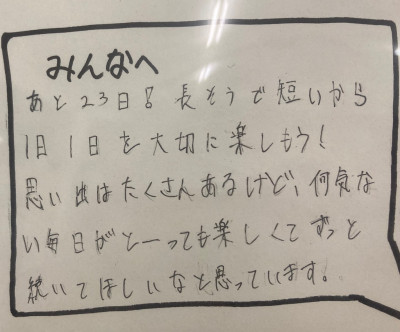 みんなへ
あと23日！長そうで短いから
1日1日を大切に楽しもう！
思い出はたくさんあるけど、何気な
い毎日がとーっても楽しくてずっと
続いてほしいなと思っています。